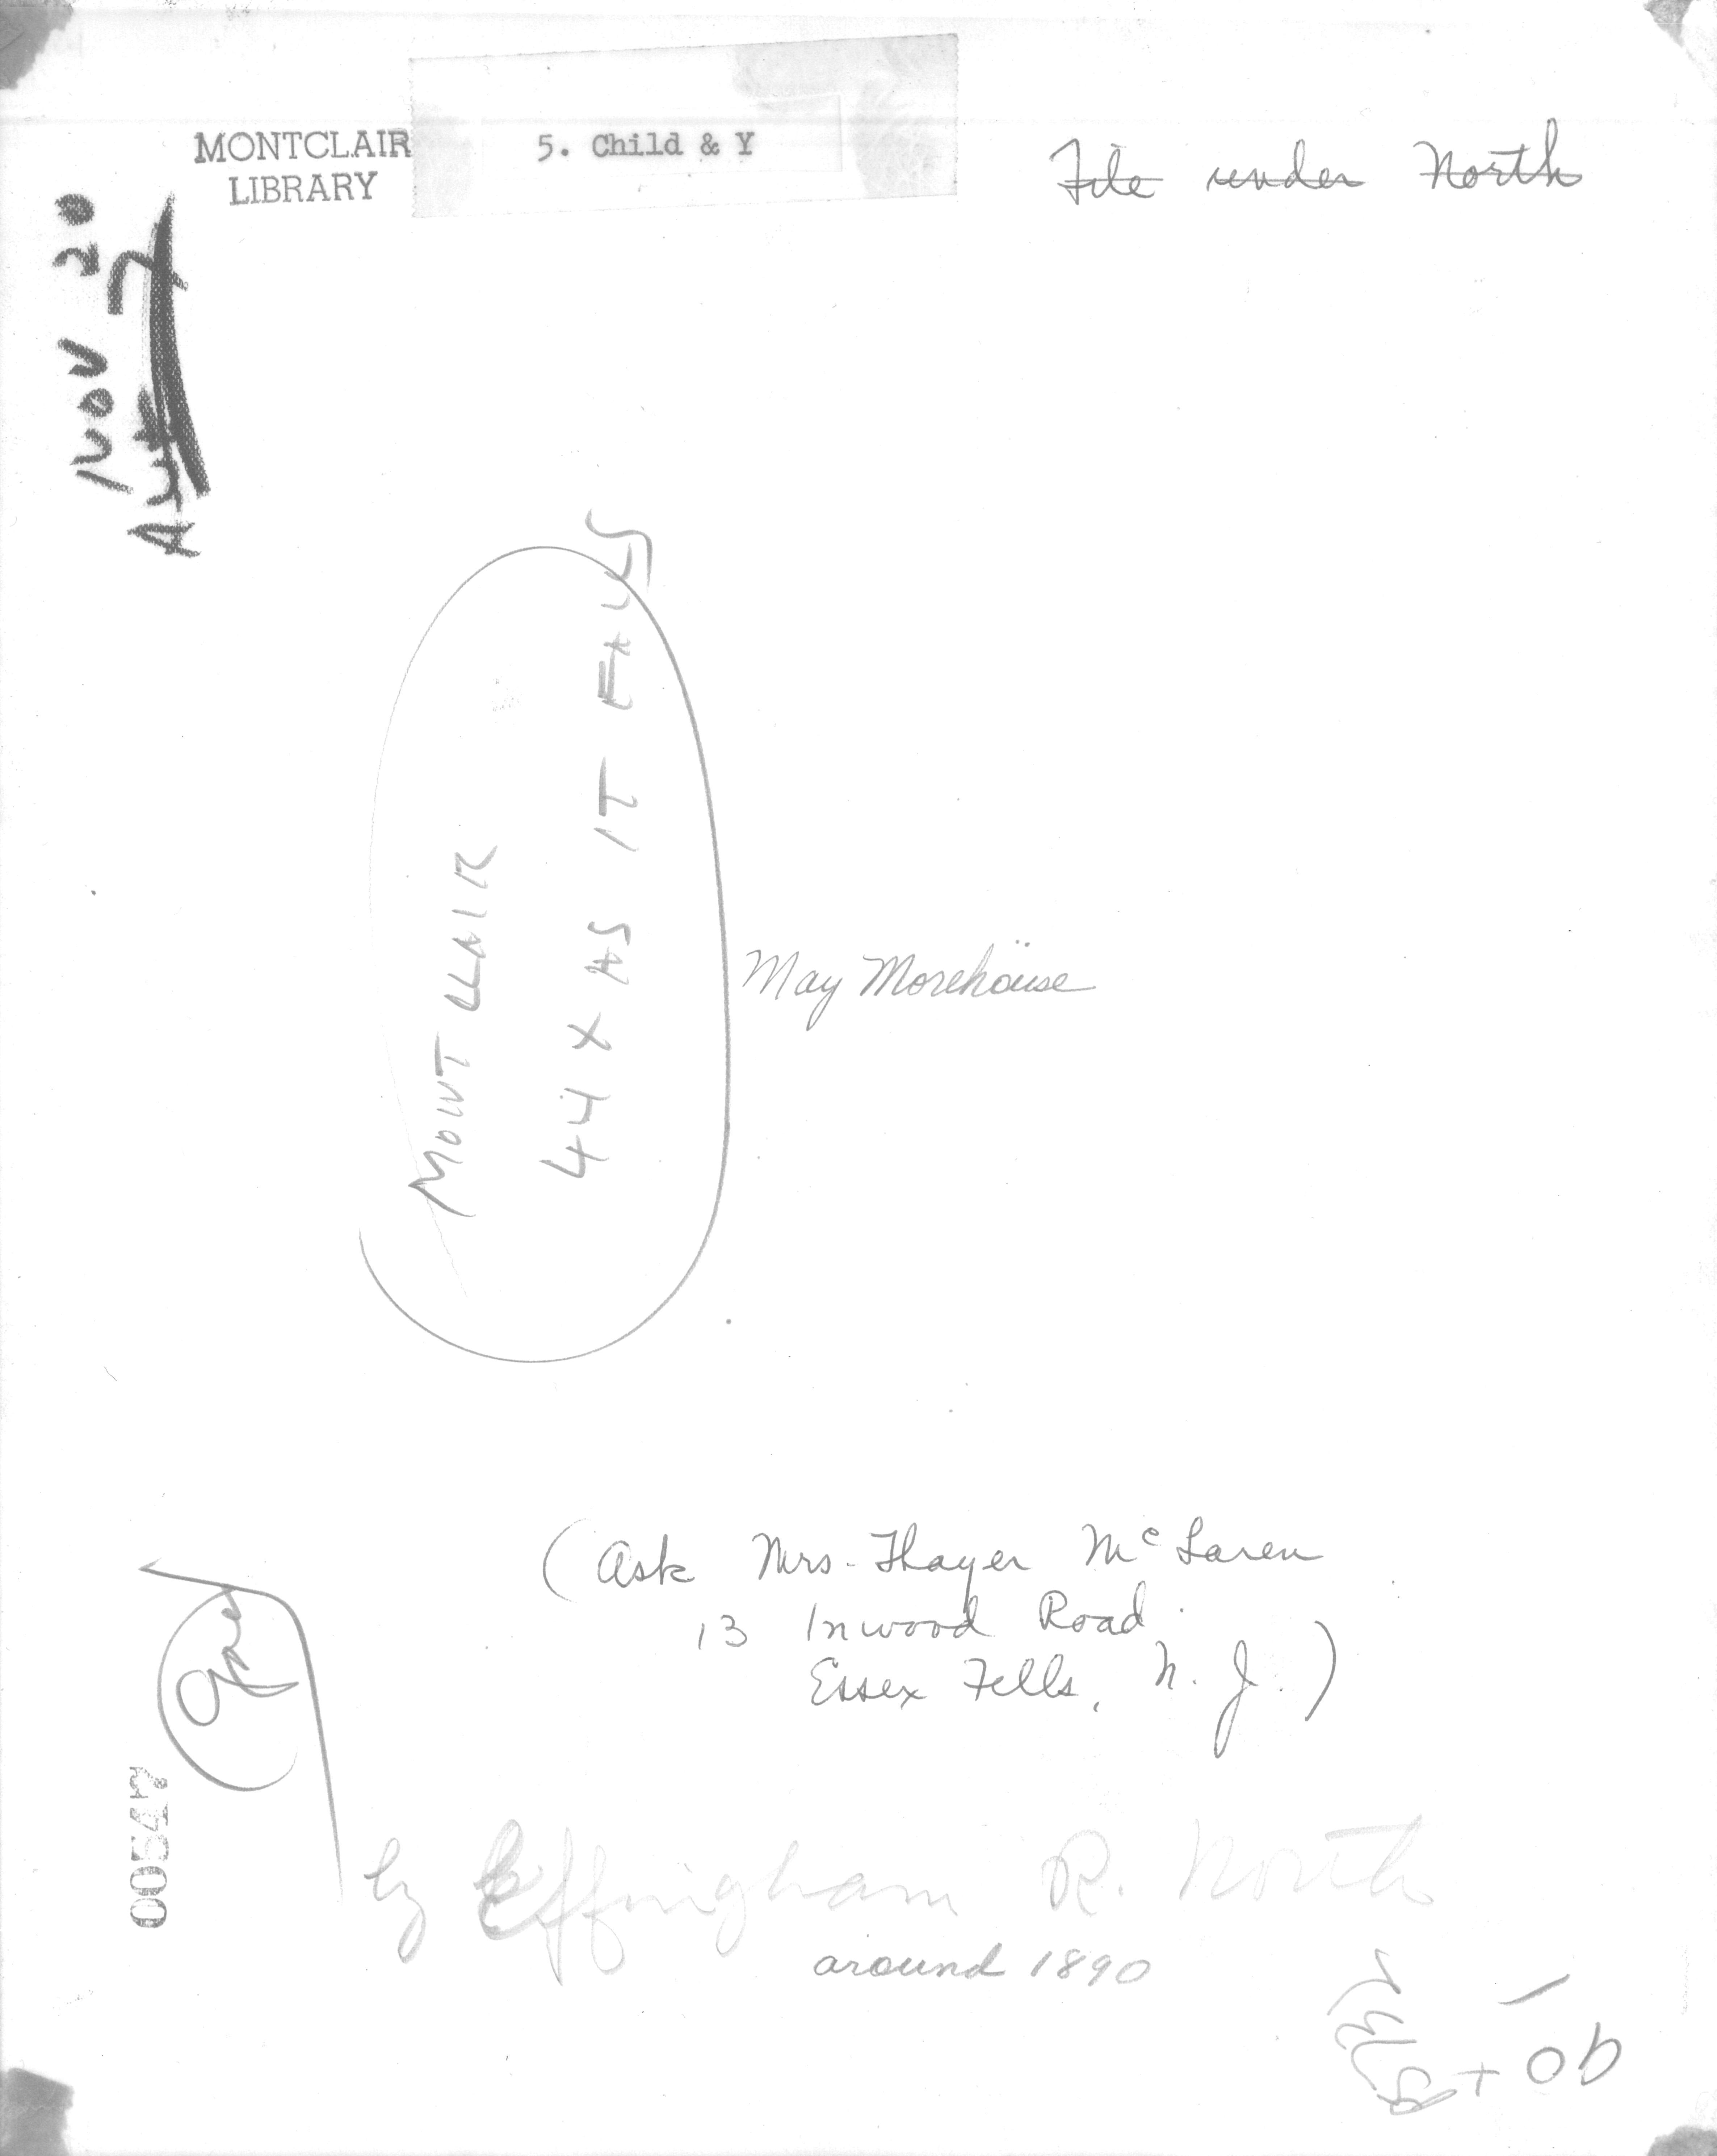 MONTCLAIR
LIBRARY
5. Child & Y
File under North
NOV 20
MONTCLAIR
44 X AS IT FALLS
May Morehouse
(Ask Mrs. Thayer McLaren
13 Inwood Road
Essex Fells, N. J.)
00547
by Effingham R. North
around 1890